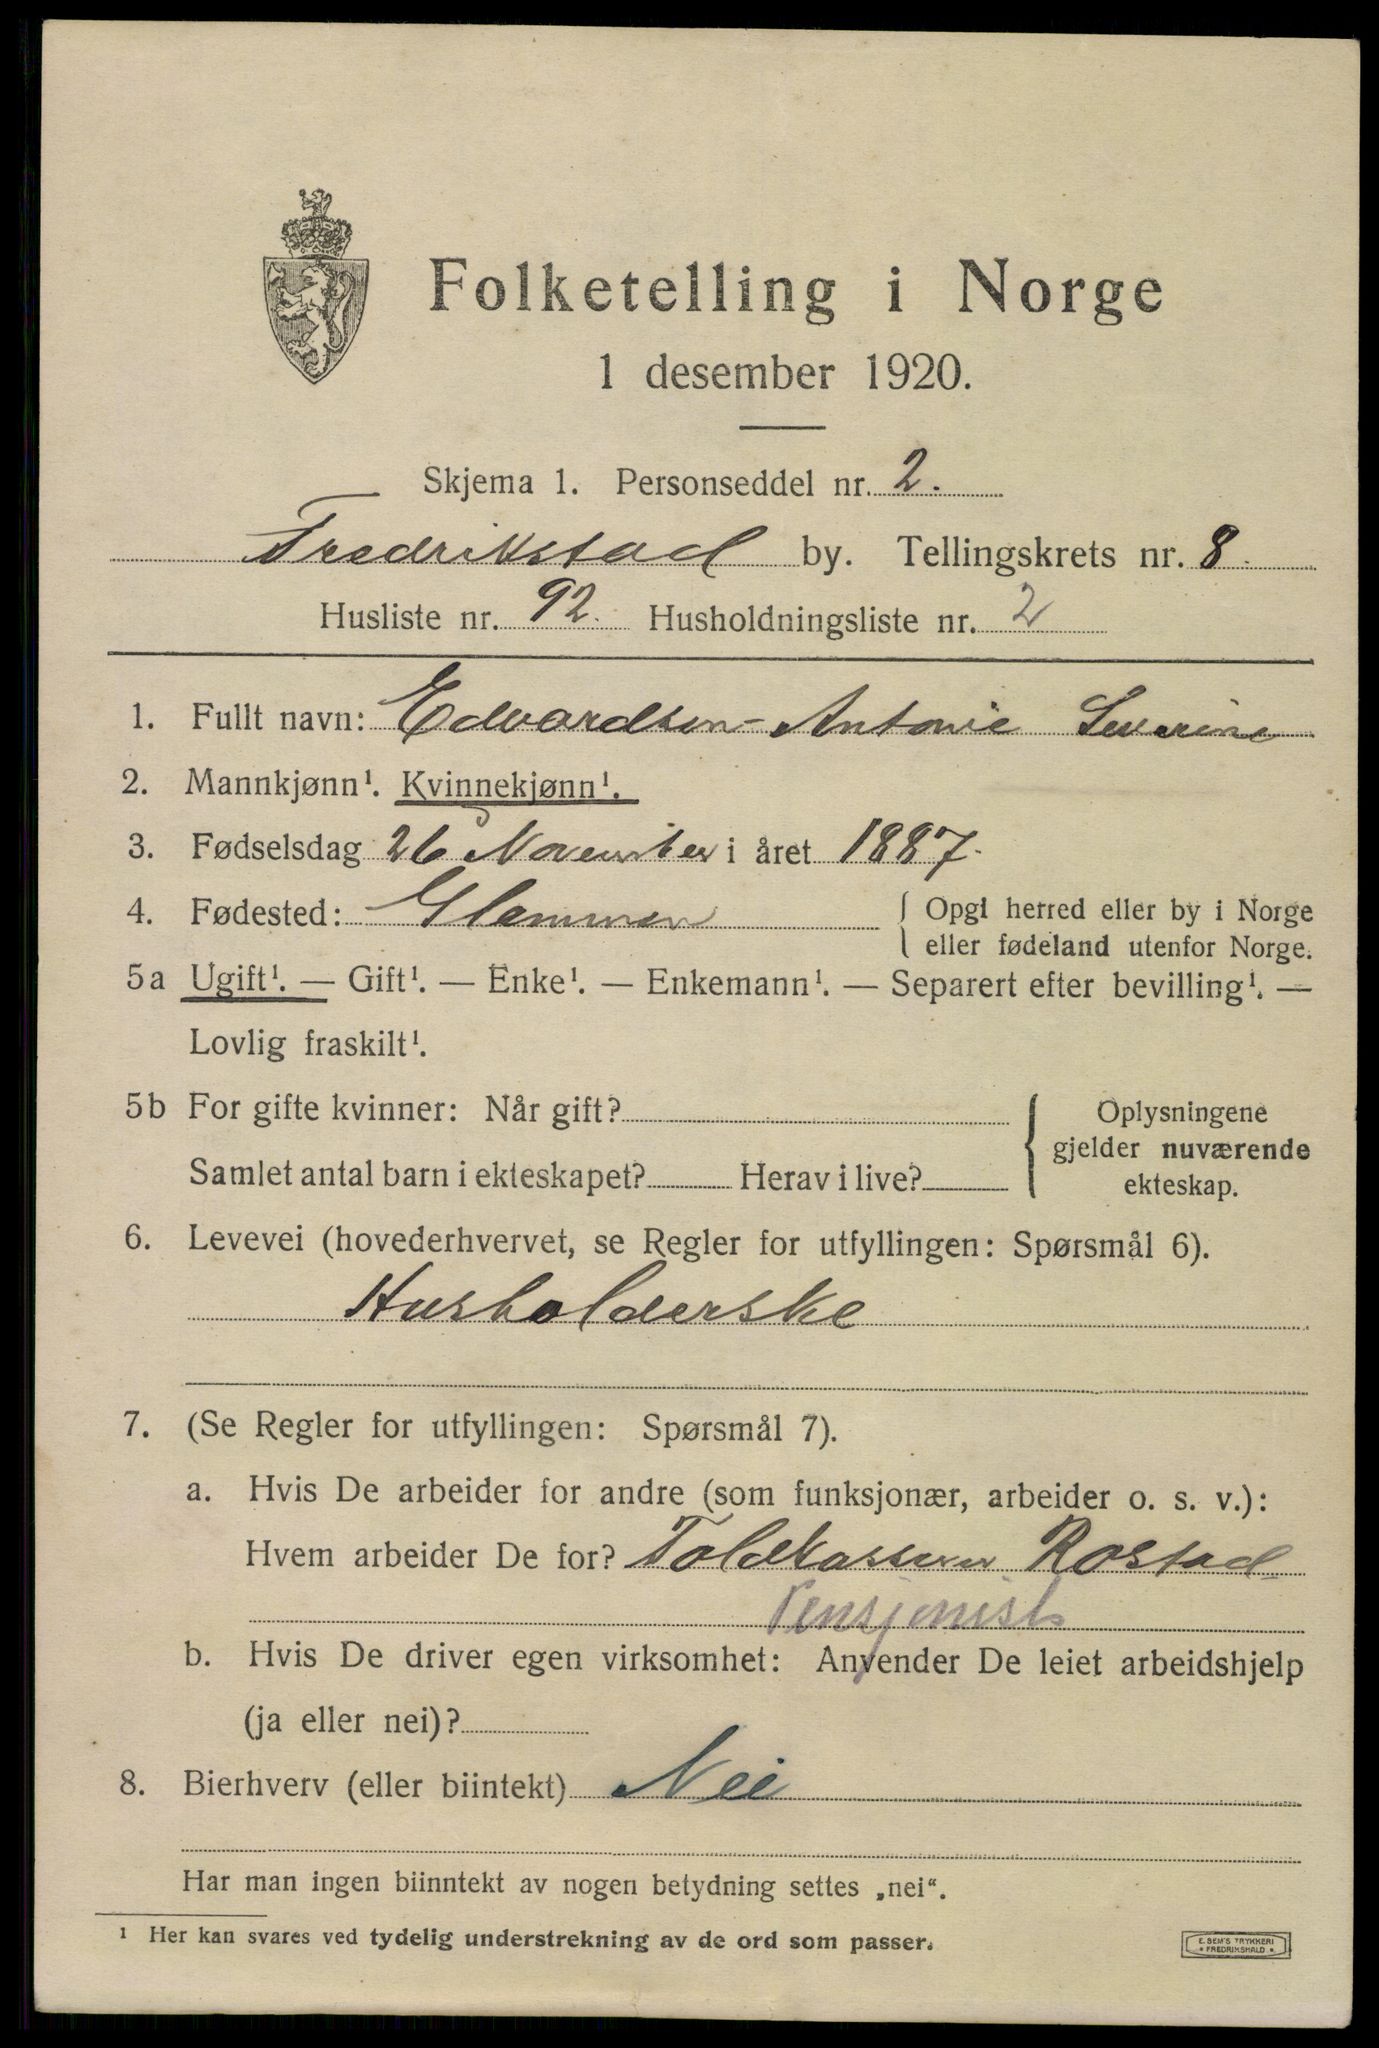 Folketelling i Norge
1 desember 1920.
Skjema 1. Personseddel nr. 2.
Fredrikstad by. Tellingskrets nr. 8.
Husliste nr. 92. Husholdningsliste nr. 2
1. Fullt navn: Edvardsen - Antonie Severine
2. Mannkjønn¹. Kvinnekjønn¹.
3. Fødselsdag 26 November i året 1887.
4. Fødested: Glemmen { Opgi herred eller by i Norge
eller fødeland utenfor Norge.
5a Ugift¹. — Gift¹. — Enke¹. — Enkemann¹. — Separert efter bevilling¹. —
Lovlig fraskilt¹.
5b For gifte kvinner: Når gift? { Oplysningene
gjelder nuværende
Samlet antal barn i ekteskapet? Herav i live? ekteskap.
6. Levevei (hovederhvervet, se Regler for utfyllingen: Spørsmål 6).
Husholderske
7. (Se Regler for utfyllingen: Spørsmål 7).
a. Hvis De arbeider for andre (som funksjonær, arbeider o. s. v.):
Hvem arbeider De for? Toldkasserer Rostad
Pensjonist
b. Hvis De driver egen virksomhet: Anvender De leiet arbeidshjelp
(ja eller nei)?
8. Bierhverv (eller biintekt) Nei
Har man ingen biinntekt av nogen betydning settes „nei“.
¹ Her kan svares ved tydelig understrekning av de ord som passer.
E. SEM'S TRYKKERI
* FREDRIKSHALD *